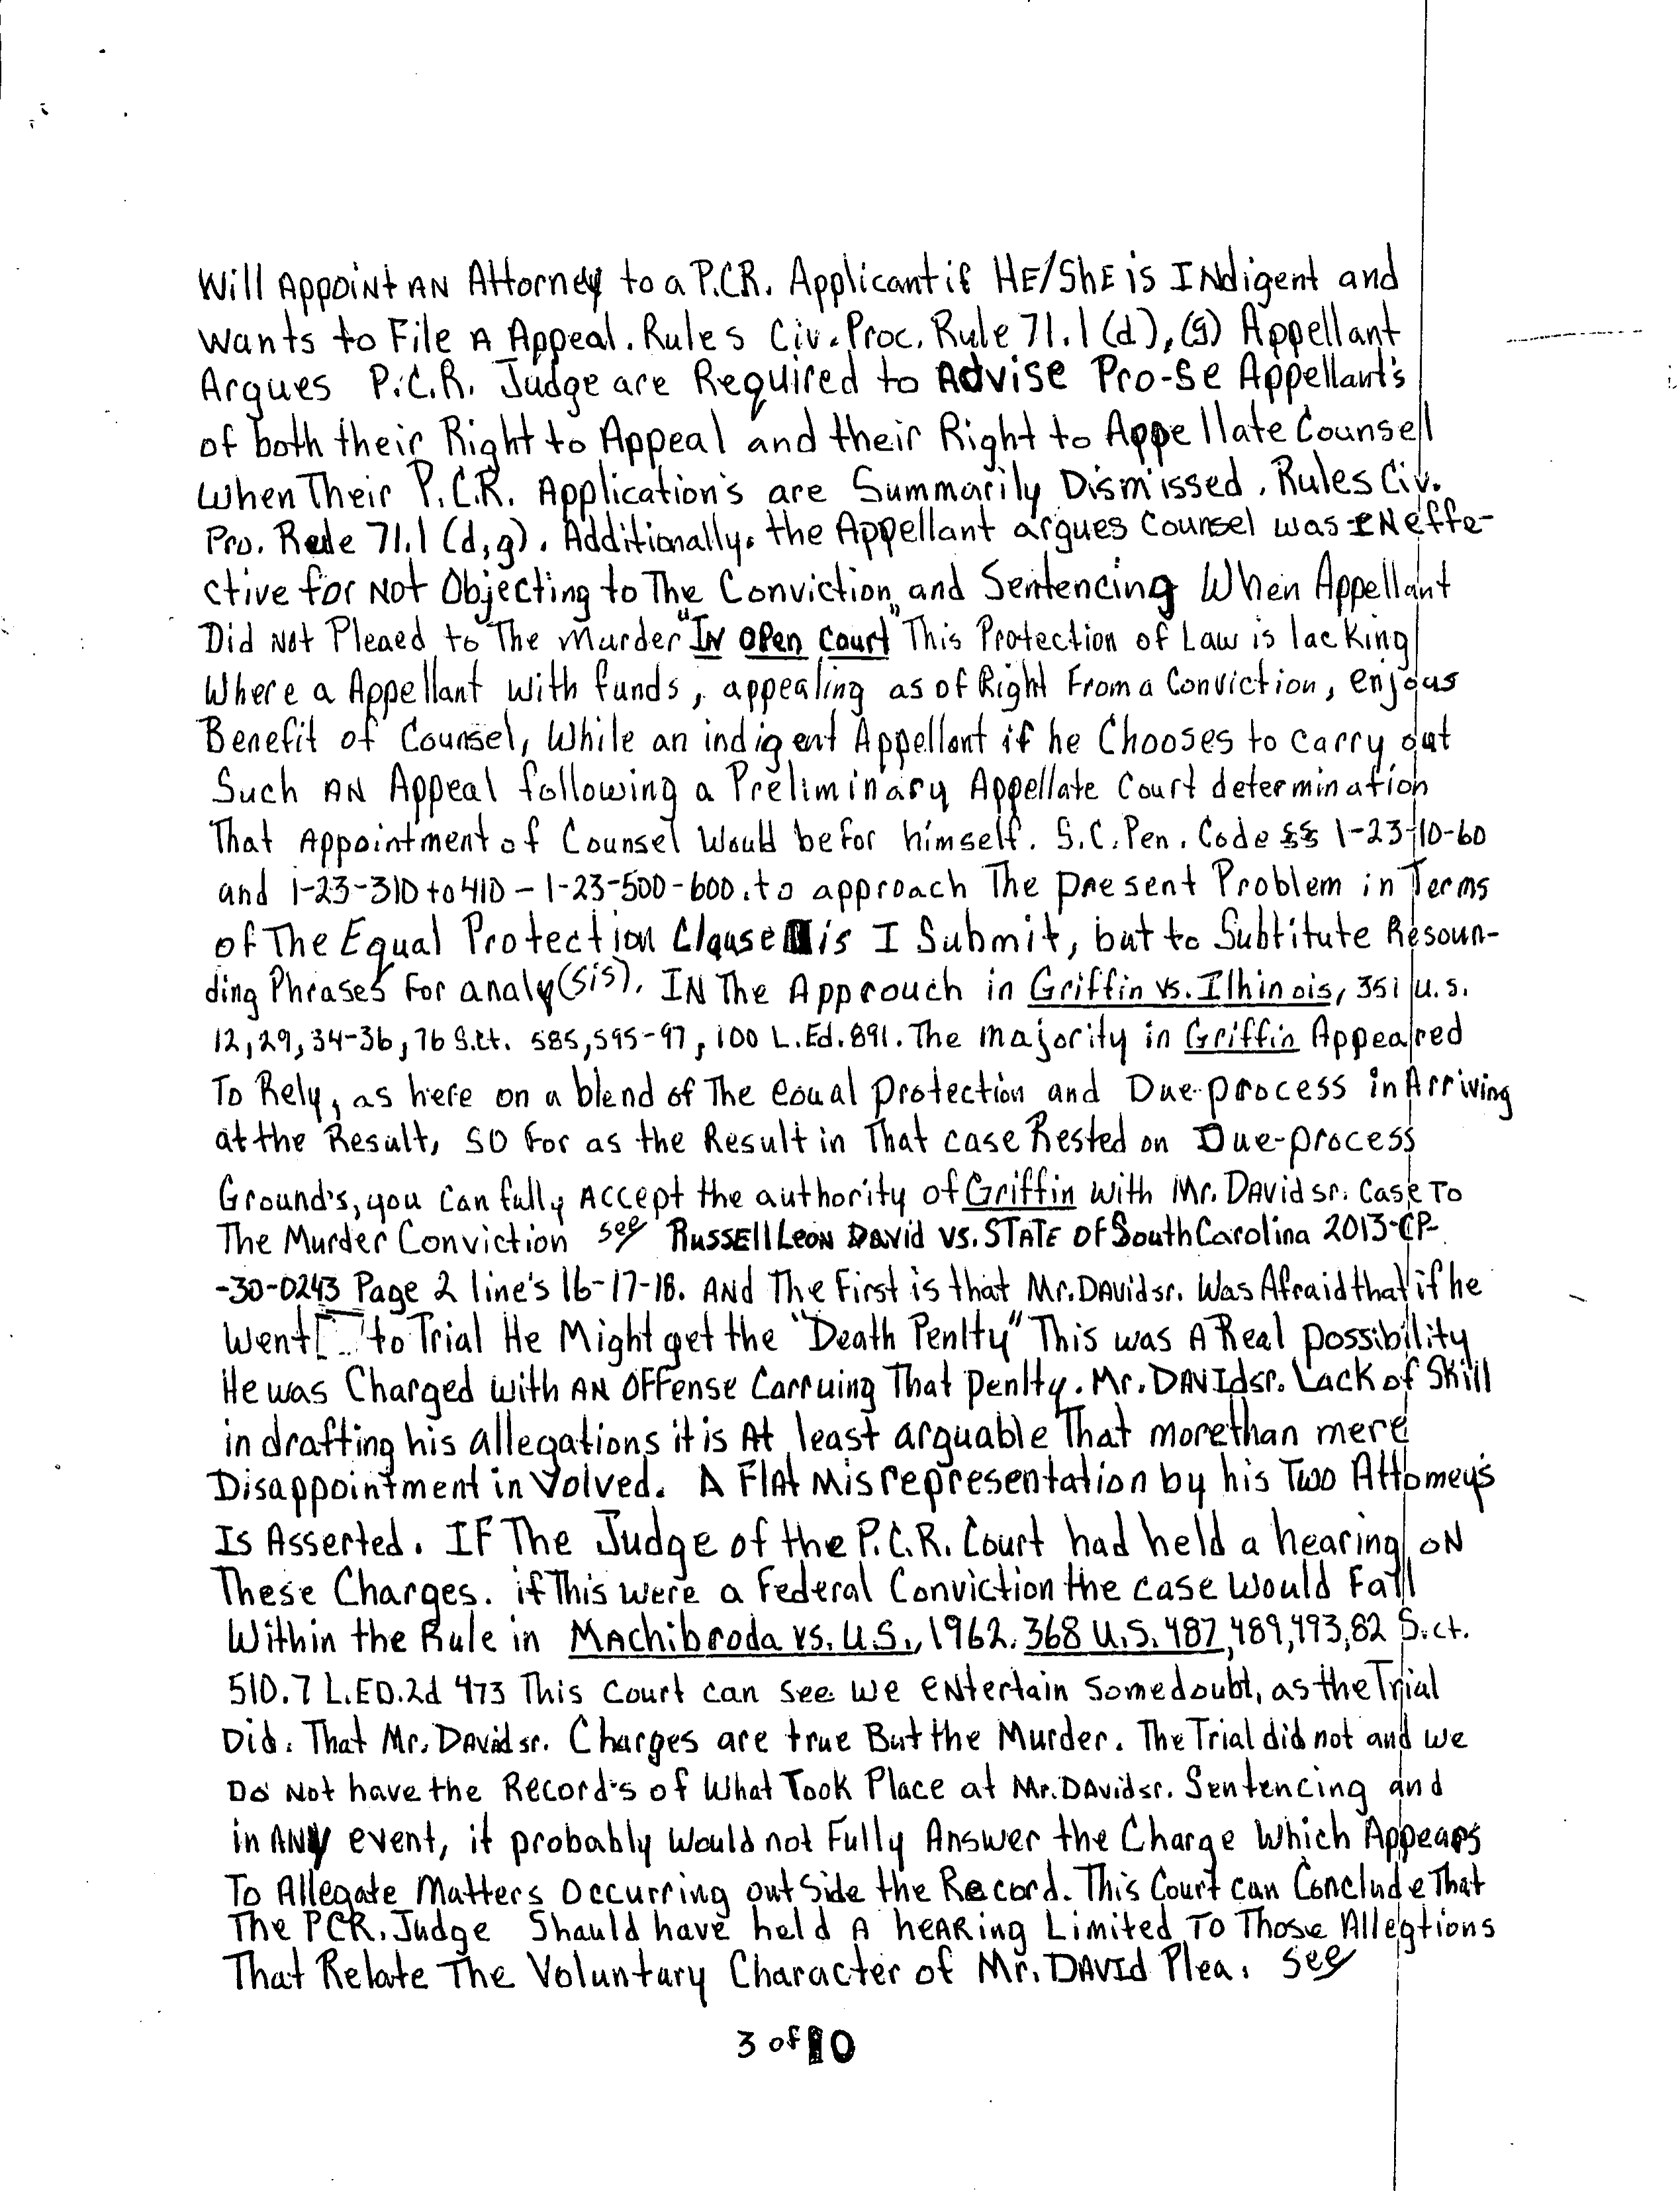 Will Appoint AN Attorney to a P.C.R. Applicant if HE/ShE is INdigent and
Wants to File A Appeal. Rules Civ. Proc. Rule 71.1 (d), (g) Appellant
Argues P.C.R. Judge are Required to Advise Pro-se Appellant's
of both their Right to Appeal and their Right to Appellate Counsel
When Their P.C.R. Application's are Summarily Dismissed. Rules Civ.
Pro. Rule 71.1 (d,g). Additionally, the Appellant argues Counsel was INeffe-
ctive for Not Objecting to The Conviction and Sentencing When Appellant
Did Not Pleaed to The Murder "IN Open Court" This Protection of Law is lacking
Where a Appellant with funds, appealing as of Right From a Conviction, enjous
Benefit of Counsel, While an indigent Appellant if he Chooses to carry out
Such AN Appeal following a Preliminary Appellate Court determination
That Appointment of Counsel Would be for himself. S.C. Pen. Code §§ 1-23-10-60
and 1-23-310 to 410 - 1-23-500-600. to approach The present Problem in Terms
of The Equal Protection Clause is I Submit, but to Subtitute Resoun-
ding Phrases For analy(sis). IN The Approuch in Griffin vs. Ilhinois, 351 U.S.
12, 29, 34-36, 76 S.ct. 585, 595-97, 100 L.Ed. 891. The majority in Griffin Appeared
To Rely, as here on a blend of The equal protection and Due-process in Arriving
at the Result, SO for as the Result in That case Rested on Due-process
Ground's, you can fully Accept the authority of Griffin with Mr. David sr. Case To
The Murder Conviction see Russell Leon David vs. State of South Carolina 2013-CP-
-30-0243 Page 2 line's 16-17-18. And The First is that Mr. David sr. Was Afraid that if he
Went to Trial He Might get the "Death Penlty" This was A Real possibility
He was Charged with AN OFFense Carruing That penlty. Mr. David sr. Lack of Skill
in drafting his allegations it is At least arguable That morethan mere
Disappointment in Volved. A Flat Misrepresentation by his Two Attorney's
Is Asserted. IF The Judge of the P.C.R. Court had held a hearing ON
These Charges. if This were a Federal Conviction the case Would Fall
Within the Rule in Machibroda vs. U.S., 1962. 368 U.S. 487, 489, 493, 82 S.ct.
510. 7 L.ED. 2d 473 This Court can see we entertain some doubt, as the Trial
Did. That Mr. David sr. Charges are true But the Murder. The Trial did not and we
Do Not have the Record's of What Took Place at Mr. David sr. Sentencing and
in ANY event, it probably would not Fully Answer the Charge Which Appears
To Allegate Matters Occurring outside the Record. This Court can Conclude That
The PCR. Judge Should have held A heARing Limited To Those Allegtions
That Relate The Voluntary Character of Mr. David Plea. See
3 of 10